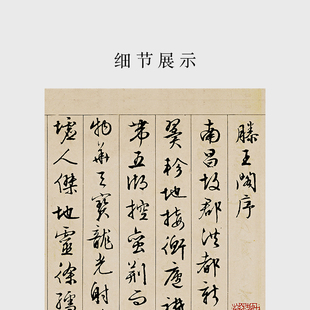 细节展示
滕王閣序
南昌故郡洪都新
翼軫地接衡廬襟
帶五湖控蠻荊而
物華天寶龍光射
墟人傑地靈徐孺